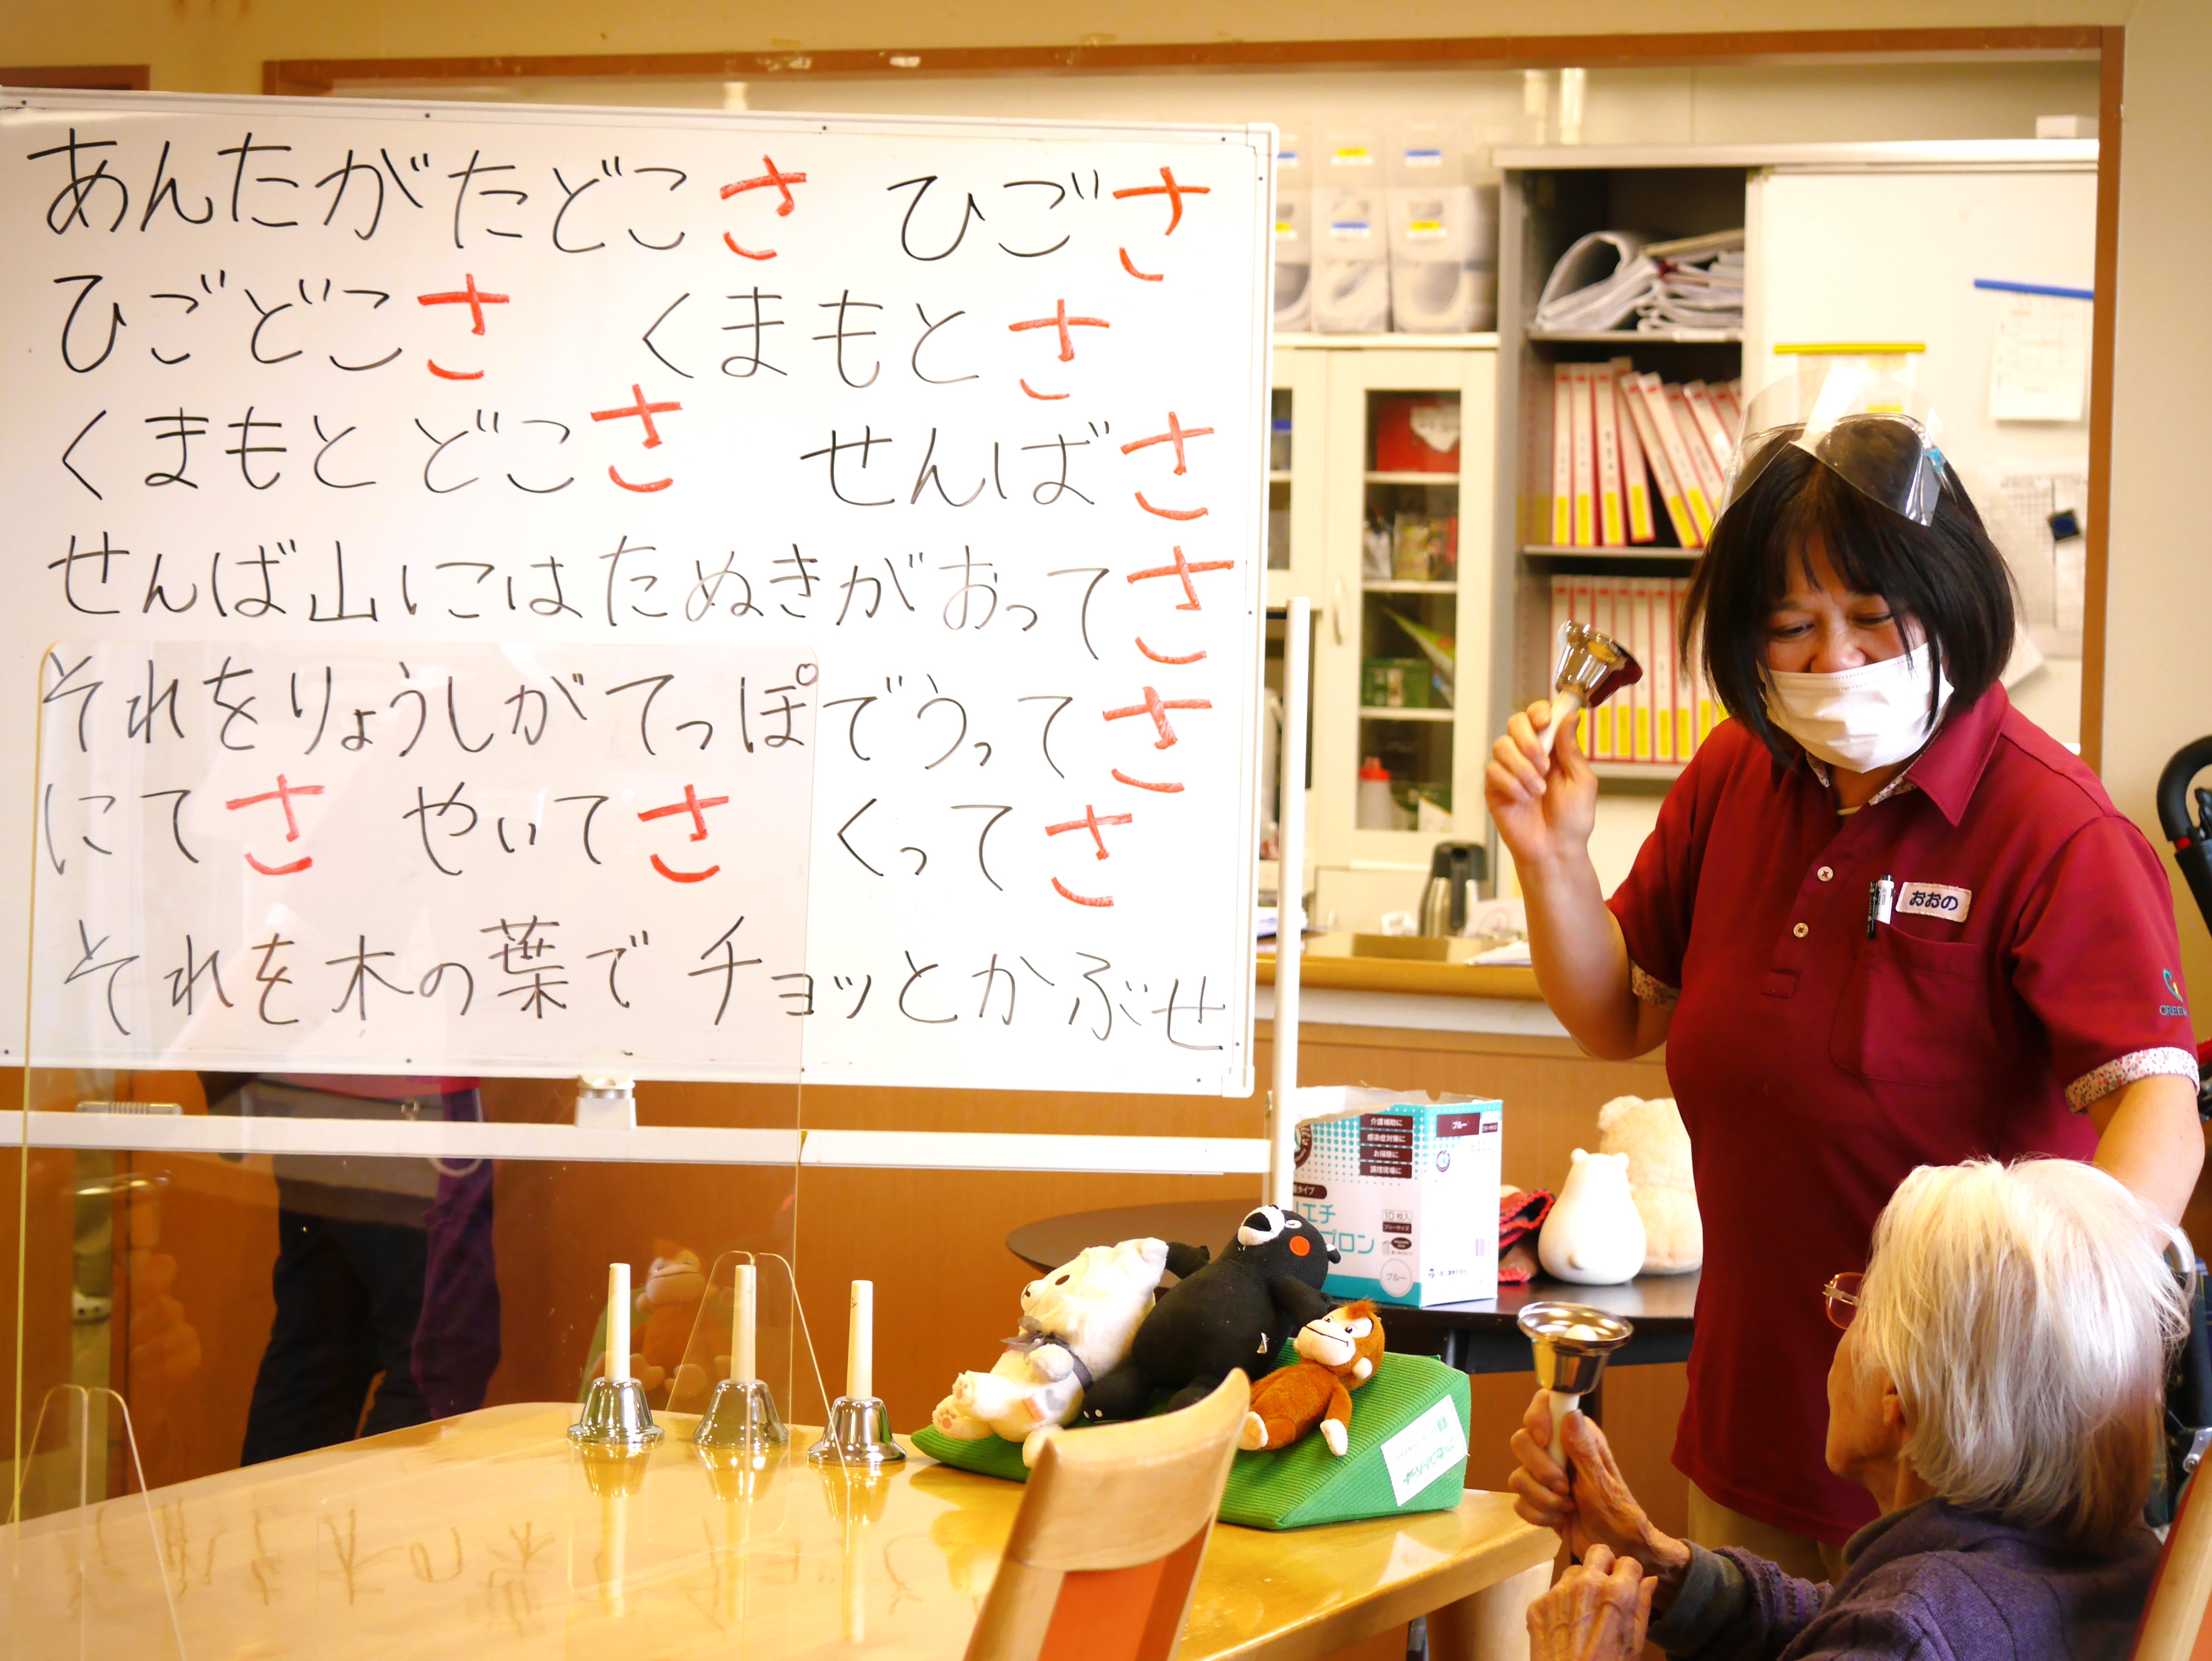 あんたがたどこさ ひごさ
ひごどこさ くまもとさ
くまもとどこさ せんばさ
せんば山にはたぬきがおってさ
それをりょうしがてっぽでうってさ
にてさ やいてさ くってさ
それを木の葉でチョッとかぶせ
おおの
介護補助に
感染症対策に
お掃除に
調理現場に
ブルー
10枚入
フリーサイズ
ブルー